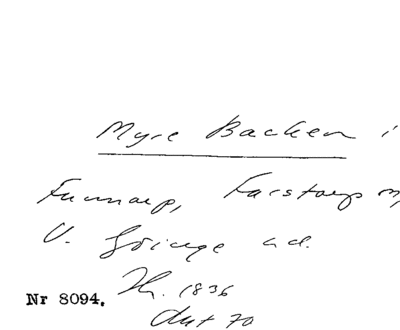 Myre Backen i
Funnarp, Farstorp
V. Göinge hd.
Nr 8094. Th. 1836
dat 70